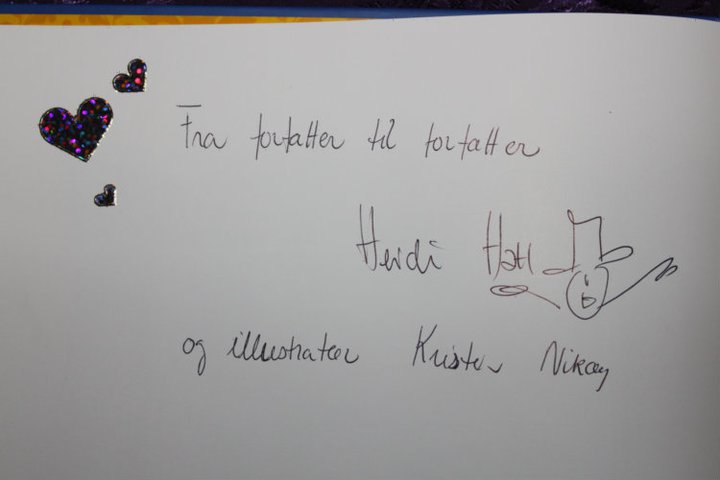 Fra forfatter til forfatter
Heidi Hall
og illustratør Kristin